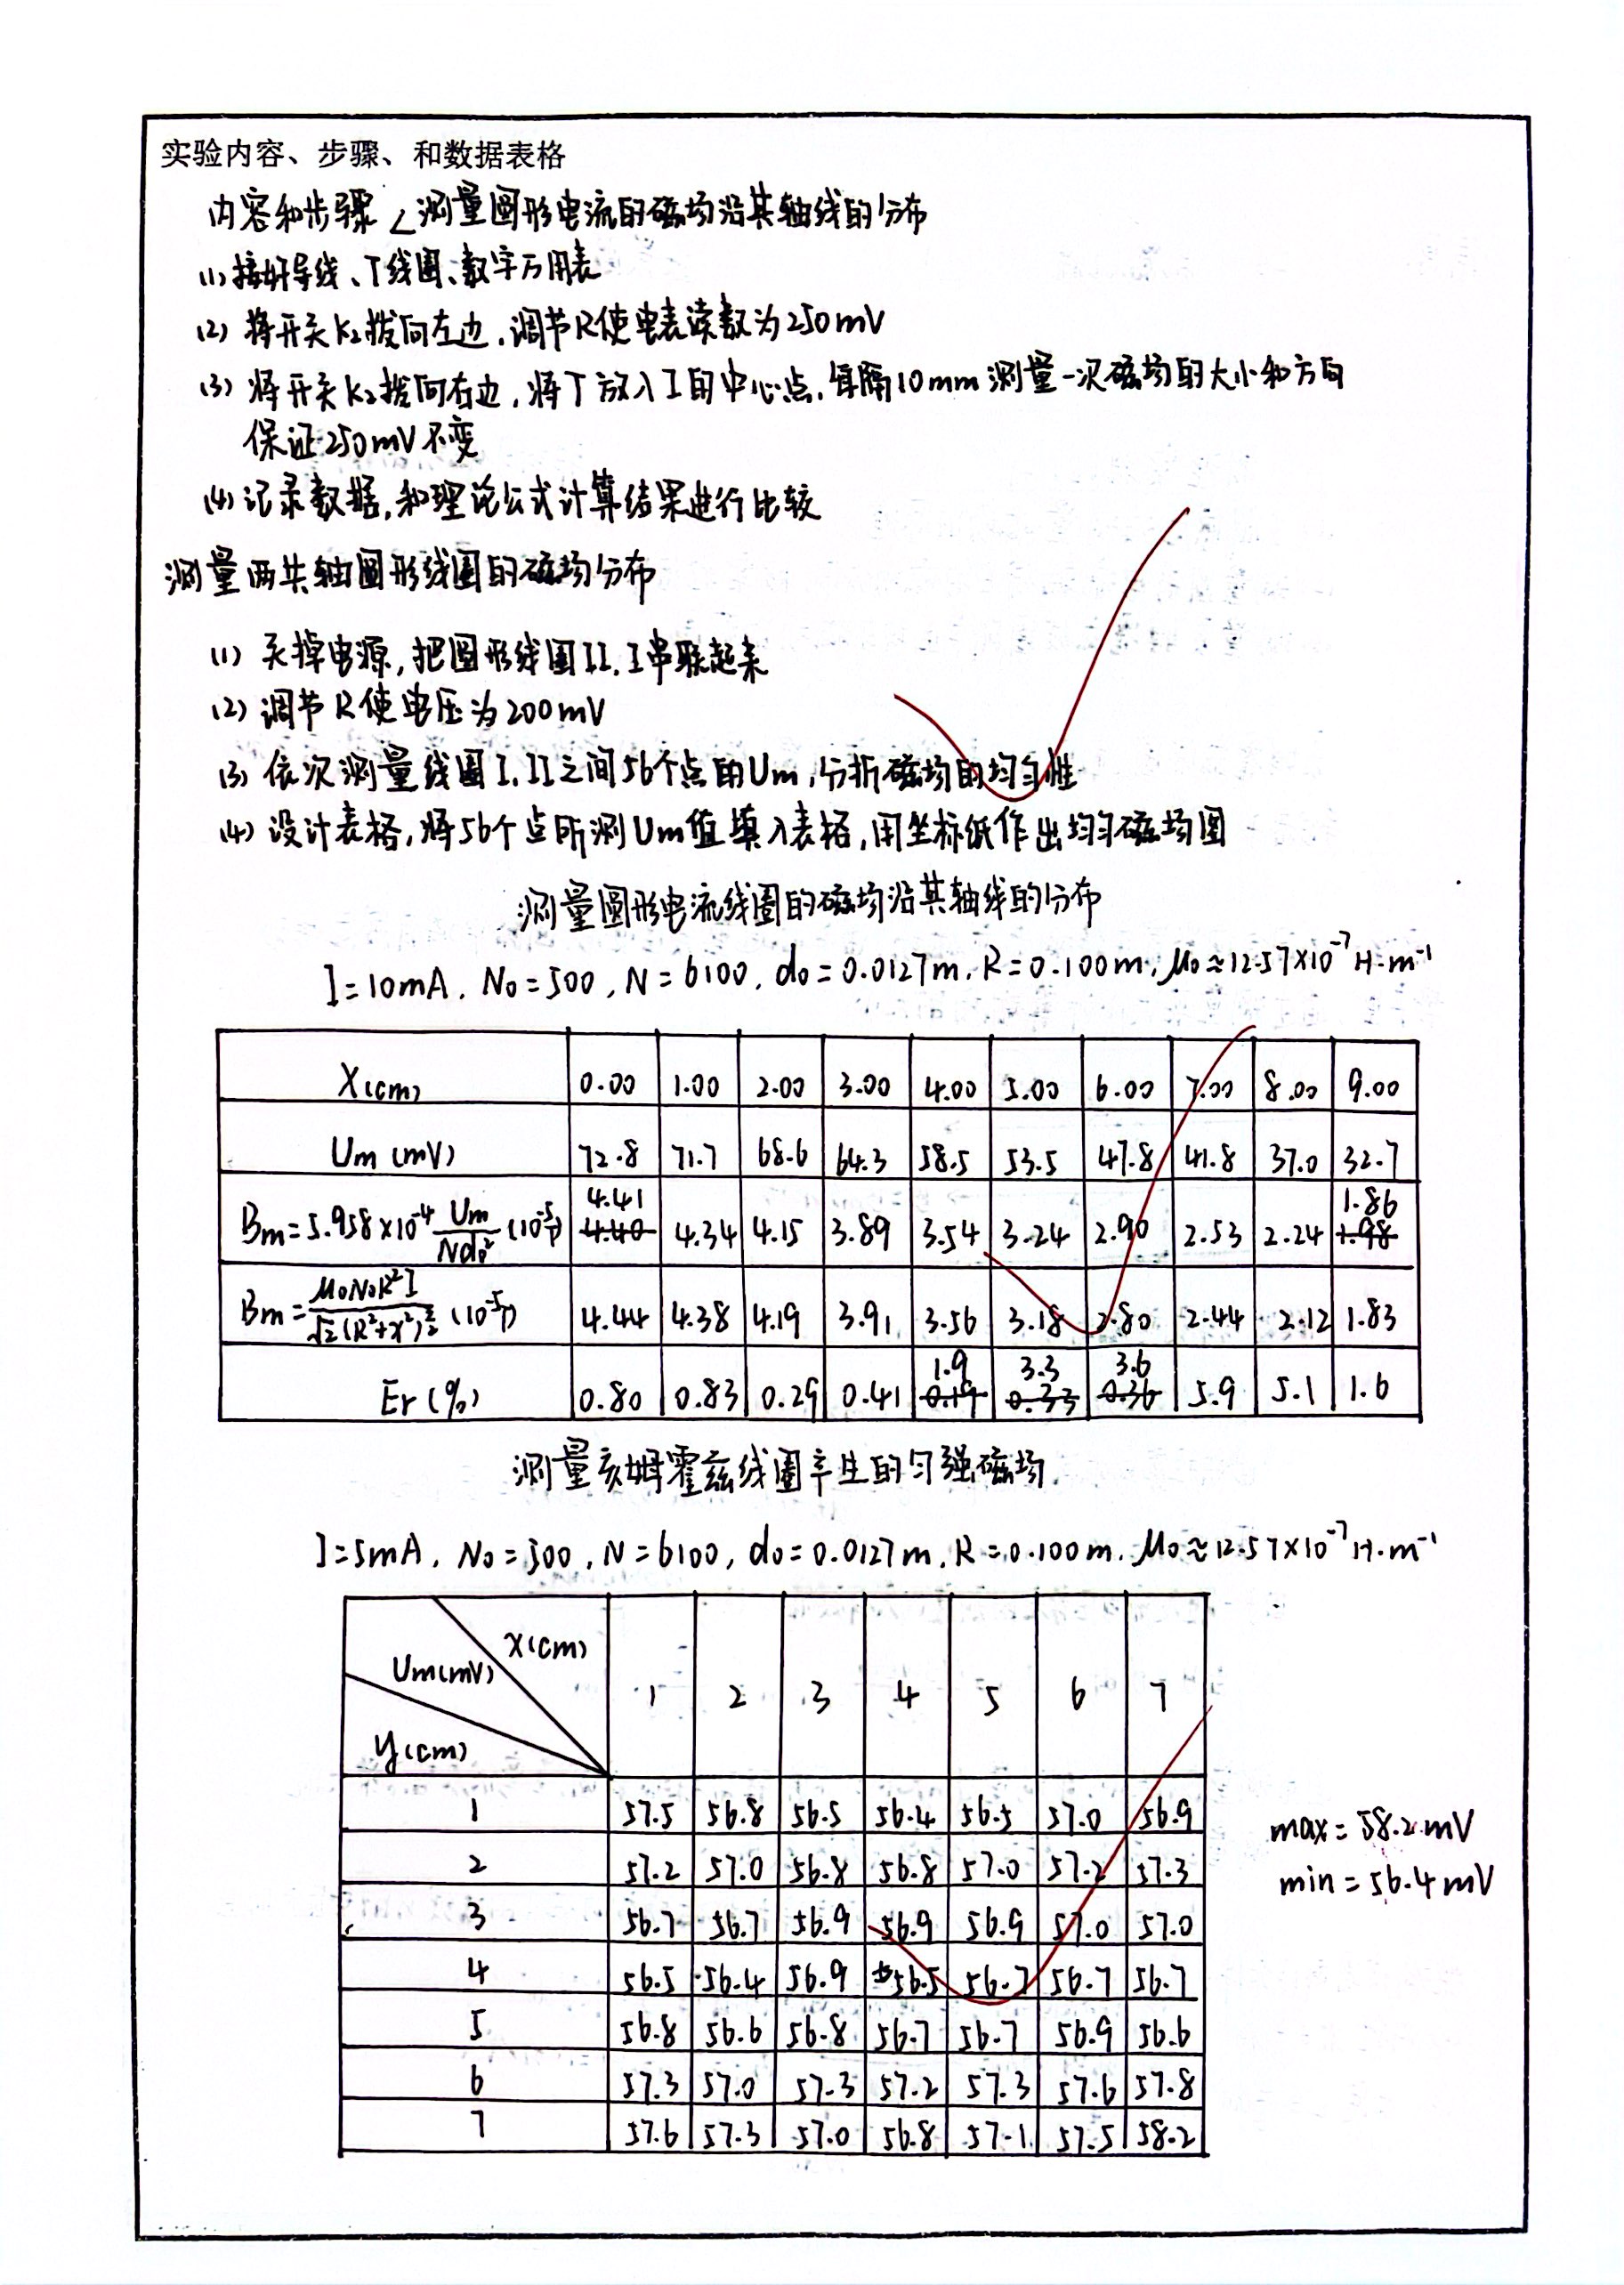 实验内容、步骤、和数据表格
内容和步骤 ∠测量圆形电流的磁场沿其轴线的分布
(1) 接好导线、T线圈、数字万用表
(2) 将开关K₂拨向左边,调节R使电表读数为250mV
(3) 将开关K₂拨向右边,将T放入I的中心点,每隔10mm测量一次磁场的大小和方向
保证250mV不变
(4) 记录数据,和理论公式计算结果进行比较
测量两共轴圆形线圈的磁场分布
(1) 关掉电源,把圆形线圈II、I串联起来
(2) 调节R使电压为200mV
(3) 依次测量线圈I、II之间56个点的Um,分析磁场的均匀性
(4) 设计表格,将56个点所测Um值填入表格,用坐标纸作出均匀磁场图
测量圆形电流线圈的磁场沿其轴线的分布
I=10mA, N₀=500, N=6100, d₀=0.0127m, R=0.100m, μ₀≈12.57×10⁻⁷H·m⁻¹
X(cm) 0.00 1.00 2.00 3.00 4.00 5.00 6.00 7.00 8.00 9.00
Um (mV) 72.8 71.7 68.6 64.3 58.5 53.5 47.8 41.8 37.0 32.7
4.41 1.86
Bm=5.958×10⁻⁴ Um/Nd₀² (10⁻⁵T) 4.40 4.34 4.15 3.89 3.54 3.24 2.90 2.53 2.24 1.98
Bm=μ₀N₀R²I/√2(R²+x²)^(3/2) (10⁻⁵T) 4.44 4.38 4.19 3.91 3.56 3.18 2.80 2.44 2.12 1.83
1.9 3.3 3.6
Er(%) 0.80 0.83 0.29 0.41 0.19 0.33 0.36 5.9 5.1 1.6
测量亥姆霍兹线圈产生的匀强磁场
I=5mA, N₀=500, N=6100, d₀=0.0127m, R=0.100m, μ₀≈12.57×10⁻⁷H·m⁻¹
X(cm)
Um(mV)
y(cm)
1 2 3 4 5 6 7
1 57.5 56.8 56.5 56.4 56.5 57.0 56.9
2 57.2 57.0 56.8 56.8 57.0 57.2 57.3
3 56.7 56.7 56.9 56.9 56.9 57.0 57.0
4 56.5 56.4 56.9 56.5 56.7 56.7 56.7
5 56.8 56.6 56.8 56.7 56.7 56.9 56.6
6 57.3 57.0 57.3 57.2 57.3 57.6 57.8
7 57.6 57.3 57.0 56.8 57.1 57.5 58.2
max=58.2mV
min=56.4mV